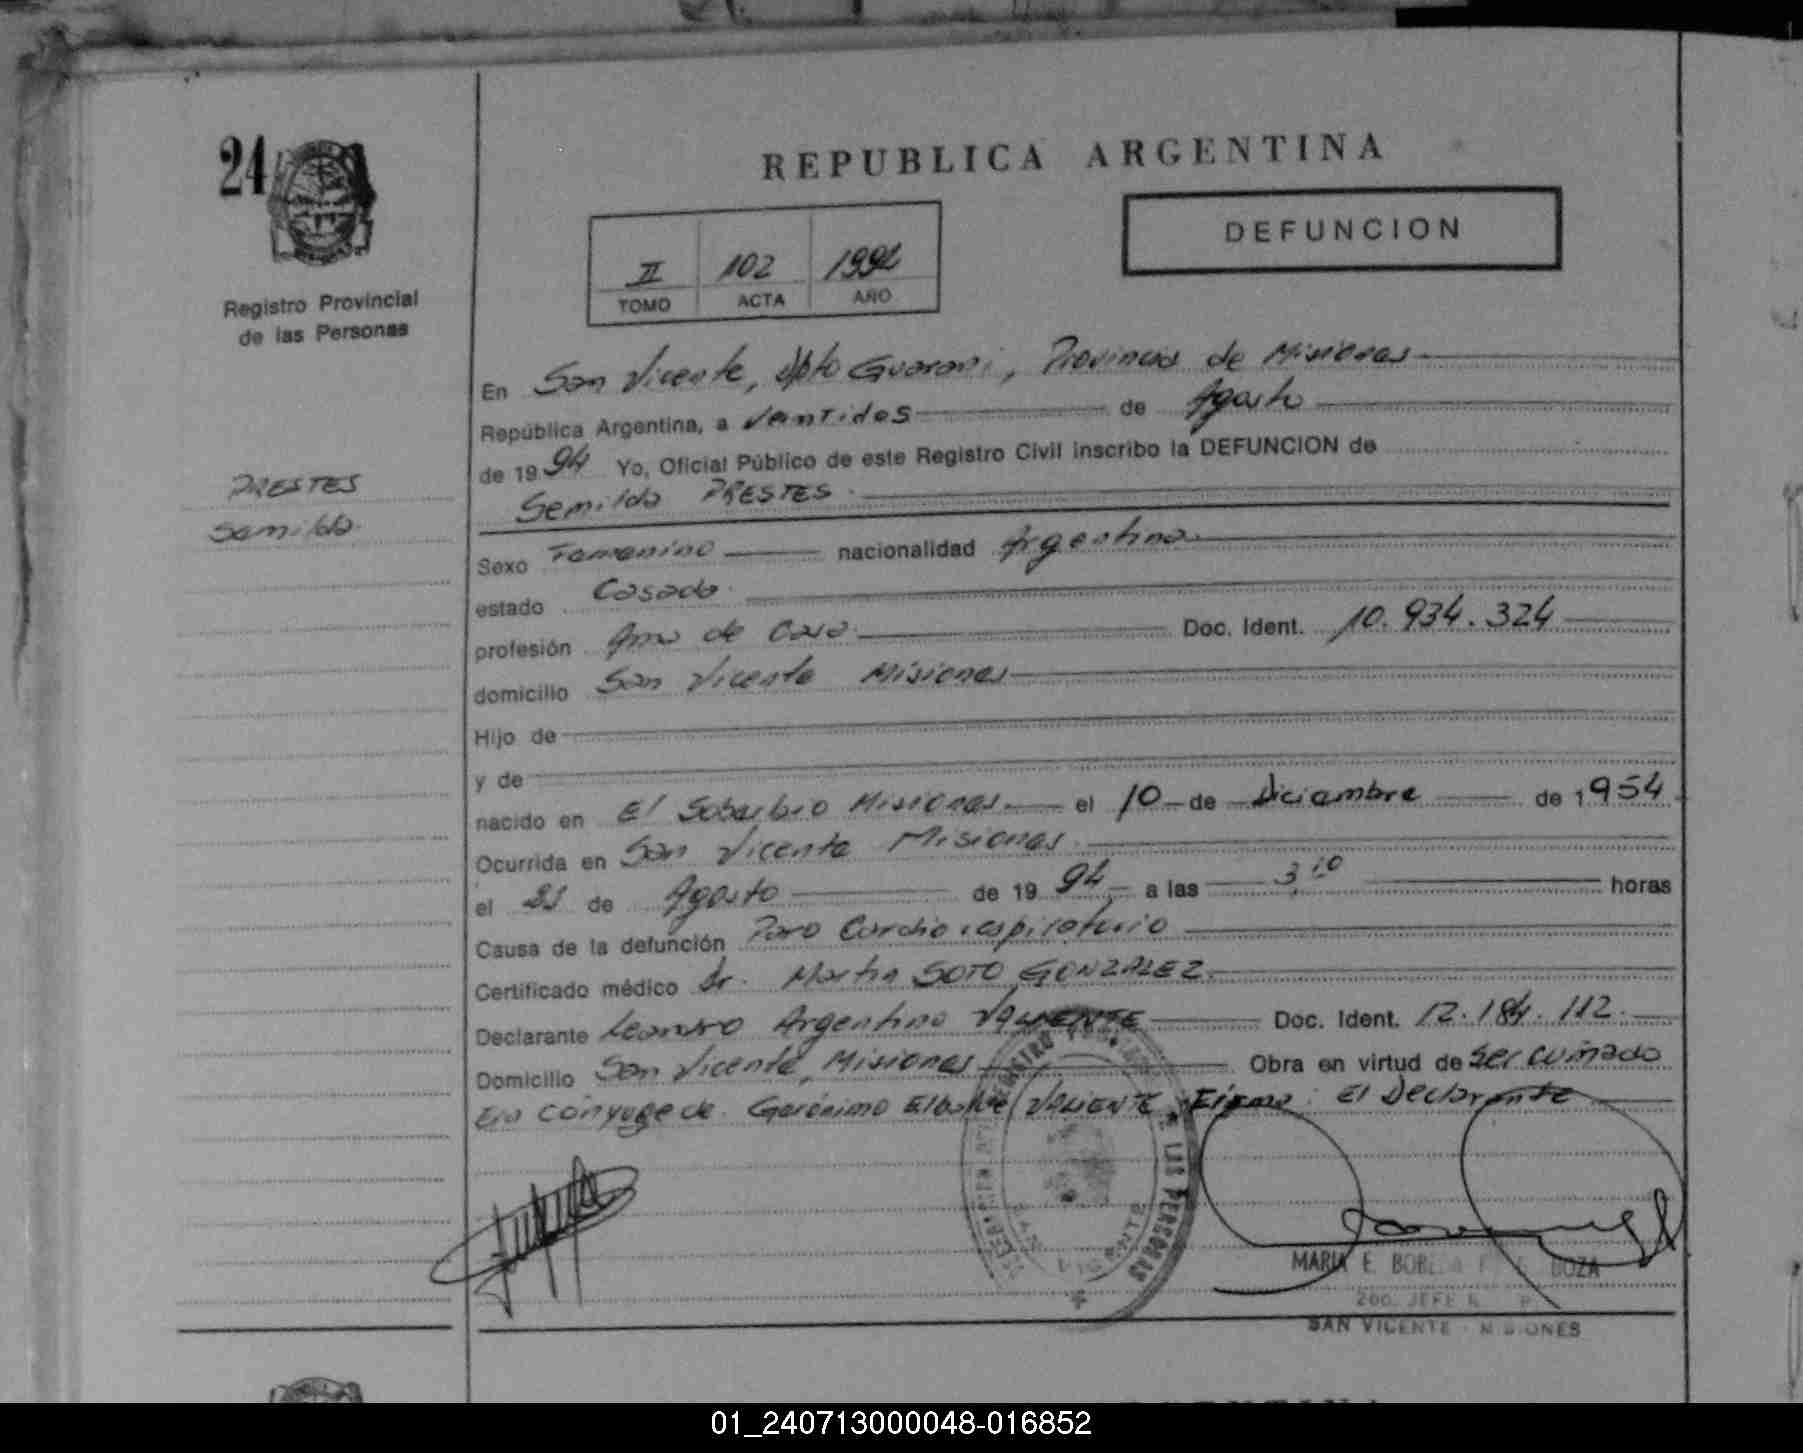 24
REPUBLICA ARGENTINA
DEFUNCION
II 102 1994
TOMO ACTA AÑO
Registro Provincial
de las Personas
PRESTES
Semilda
En San Vicente, Dpto Guarani, Provincia de Misiones
República Argentina, a Veintidos de Agosto
de 1994 Yo, Oficial Público de este Registro Civil inscribo la DEFUNCION de
Semilda PRESTES
Sexo Femenino nacionalidad Argentina
estado Casada
profesión Ama de Casa Doc. Ident. 10.934.324
domicilio San Vicente Misiones
Hijo de
y de
nacido en El Soberbio Misiones el 10 de Diciembre de 1954
Ocurrida en San Vicente Misiones
el 21 de Agosto de 1994 a las 3,10 horas
Causa de la defunción Paro Cardio respiratorio
Certificado médico Dr. Martin SOTO GONZALEZ
Declarante Leandro Argentino VALIENTE Doc. Ident. 12.184.112
Domicilio San Vicente, Misiones Obra en virtud de Ser cuñado
Era cónyuge de Gerónimo VALIENTE Firma: El Declarante
REGISTRO PROVINCIAL DE LAS PERSONAS
SAN VICENTE
MARIA E. BOZA
2do. JEFE R. P.
SAN VICENTE - MISIONES
01_240713000048-016852